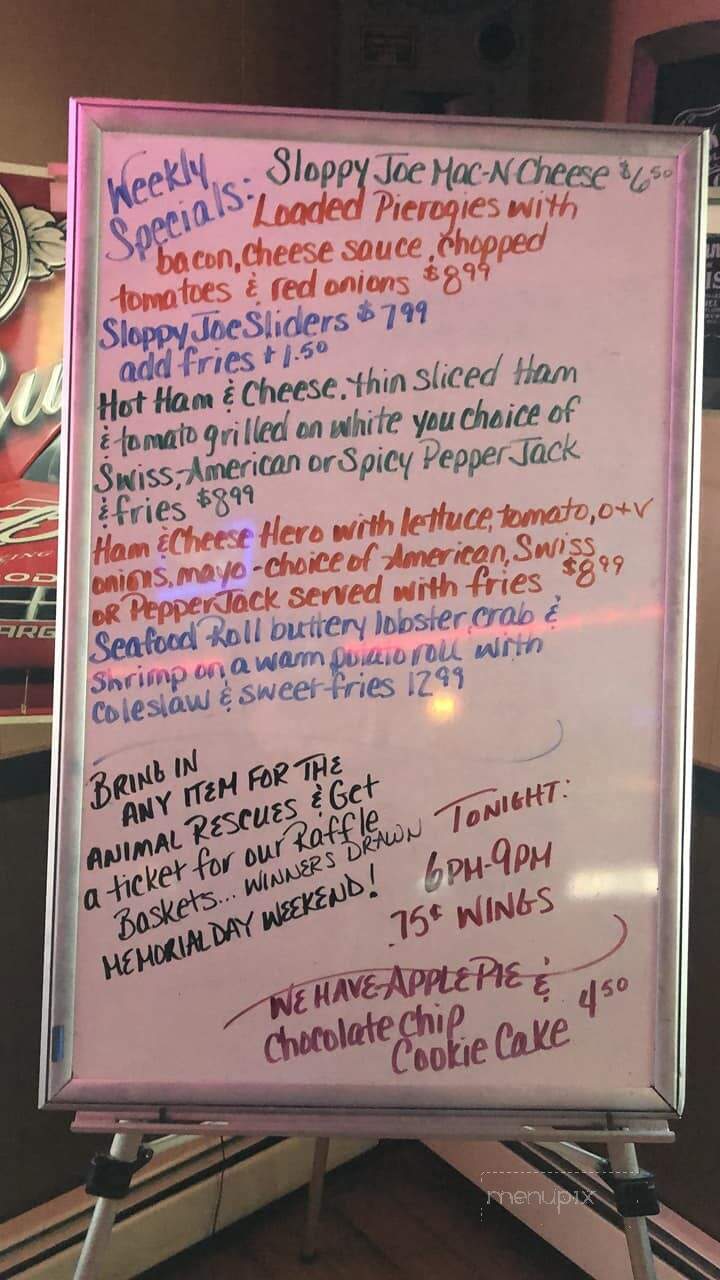 Weekly
Specials:
Sloppy Joe Mac-N-Cheese $6.50
Loaded Pierogies with
bacon, cheese sauce, chopped
tomatoes & red onions $8.99
Sloppy Joe Sliders $7.99
add fries +1.50
Hot Ham & Cheese, thin sliced Ham
& tomato grilled on white you choice of
Swiss, American or Spicy Pepper Jack
& fries $8.99
Ham & Cheese Hero with lettuce, tomato, o+v
onions, mayo - choice of American, Swiss
OR Pepper Jack served with fries $8.99
Seafood Roll buttery lobster, crab &
Shrimp on a warm potato roll with
Coleslaw & sweet fries 12.99
BRING IN
ANY ITEM FOR THE
ANIMAL RESCUES & Get
a ticket for our Raffle
Baskets... WINNERS DRAWN
MEMORIAL DAY WEEKEND!
TONIGHT:
6PM-9PM
.75¢ WINGS
WE HAVE APPLE PIE &
Chocolate Chip
Cookie Cake 4.50
menupix